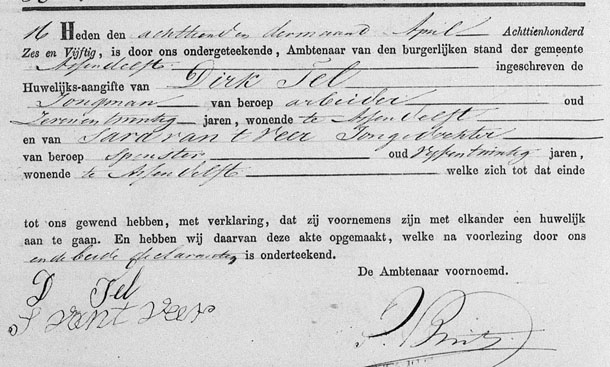 16 Heden den achttienden dermaand April Achttienhonderd
Zes en Vijftig, is door ons ondergeteekende, Ambtenaar van den burgerlijken stand der gemeente
Assendelft ingeschreven de
Huwelijks-aangifte van Dirk Tel
Jongman van beroep arbeider oud
Zevenentwintig jaren, wonende te Assendelft
en van Sara van t Veer Jongedochter
van beroep Spinster oud Vijfentwintig jaren,
wonende te Assendelft welke zich tot dat einde
tot ons gewend hebben, met verklaring, dat zij voornemens zijn met elkander een huwelijk
aan te gaan. En hebben wij daarvan deze akte opgemaakt, welke na voorlezing door ons
en de beide is onderteekend.
De Ambtenaar voornoemd.
D Tel
S vant veer